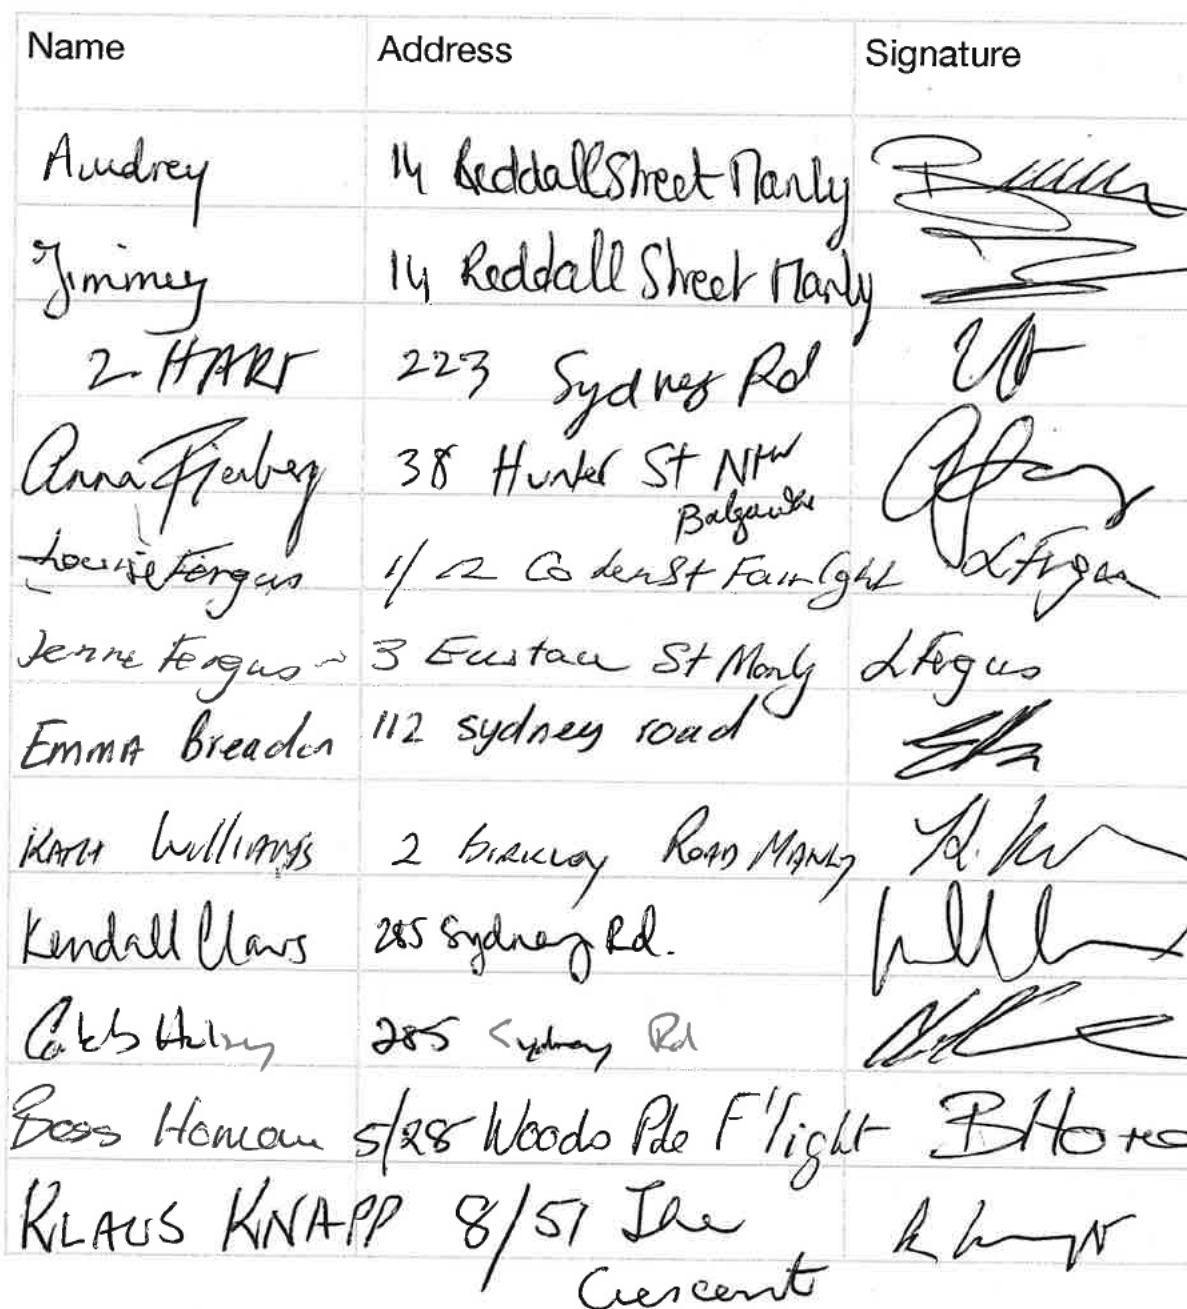 Name Address Signature
Audrey 14 Reddall Street Manly
Jimmey 14 Reddall Street Manly
2. HART 223 Sydney Rd
Anna Fienberg 38 Hunter St Nth
Balgowlah
Louise Fergus 1/22 St Fairlight L Fergus
Fergus 3 Eustace St Manly L Fergus
EMMA Breadon 112 sydney road
KATH WilliAMS 2 BIRKLEY ROAD MANLY
Kendall Claws 285 Sydney Rd.
285 Sydney Rd
5/28 Woods Pde F'light B Hore
KLAUS KNAPP 8/51 The
Crescent